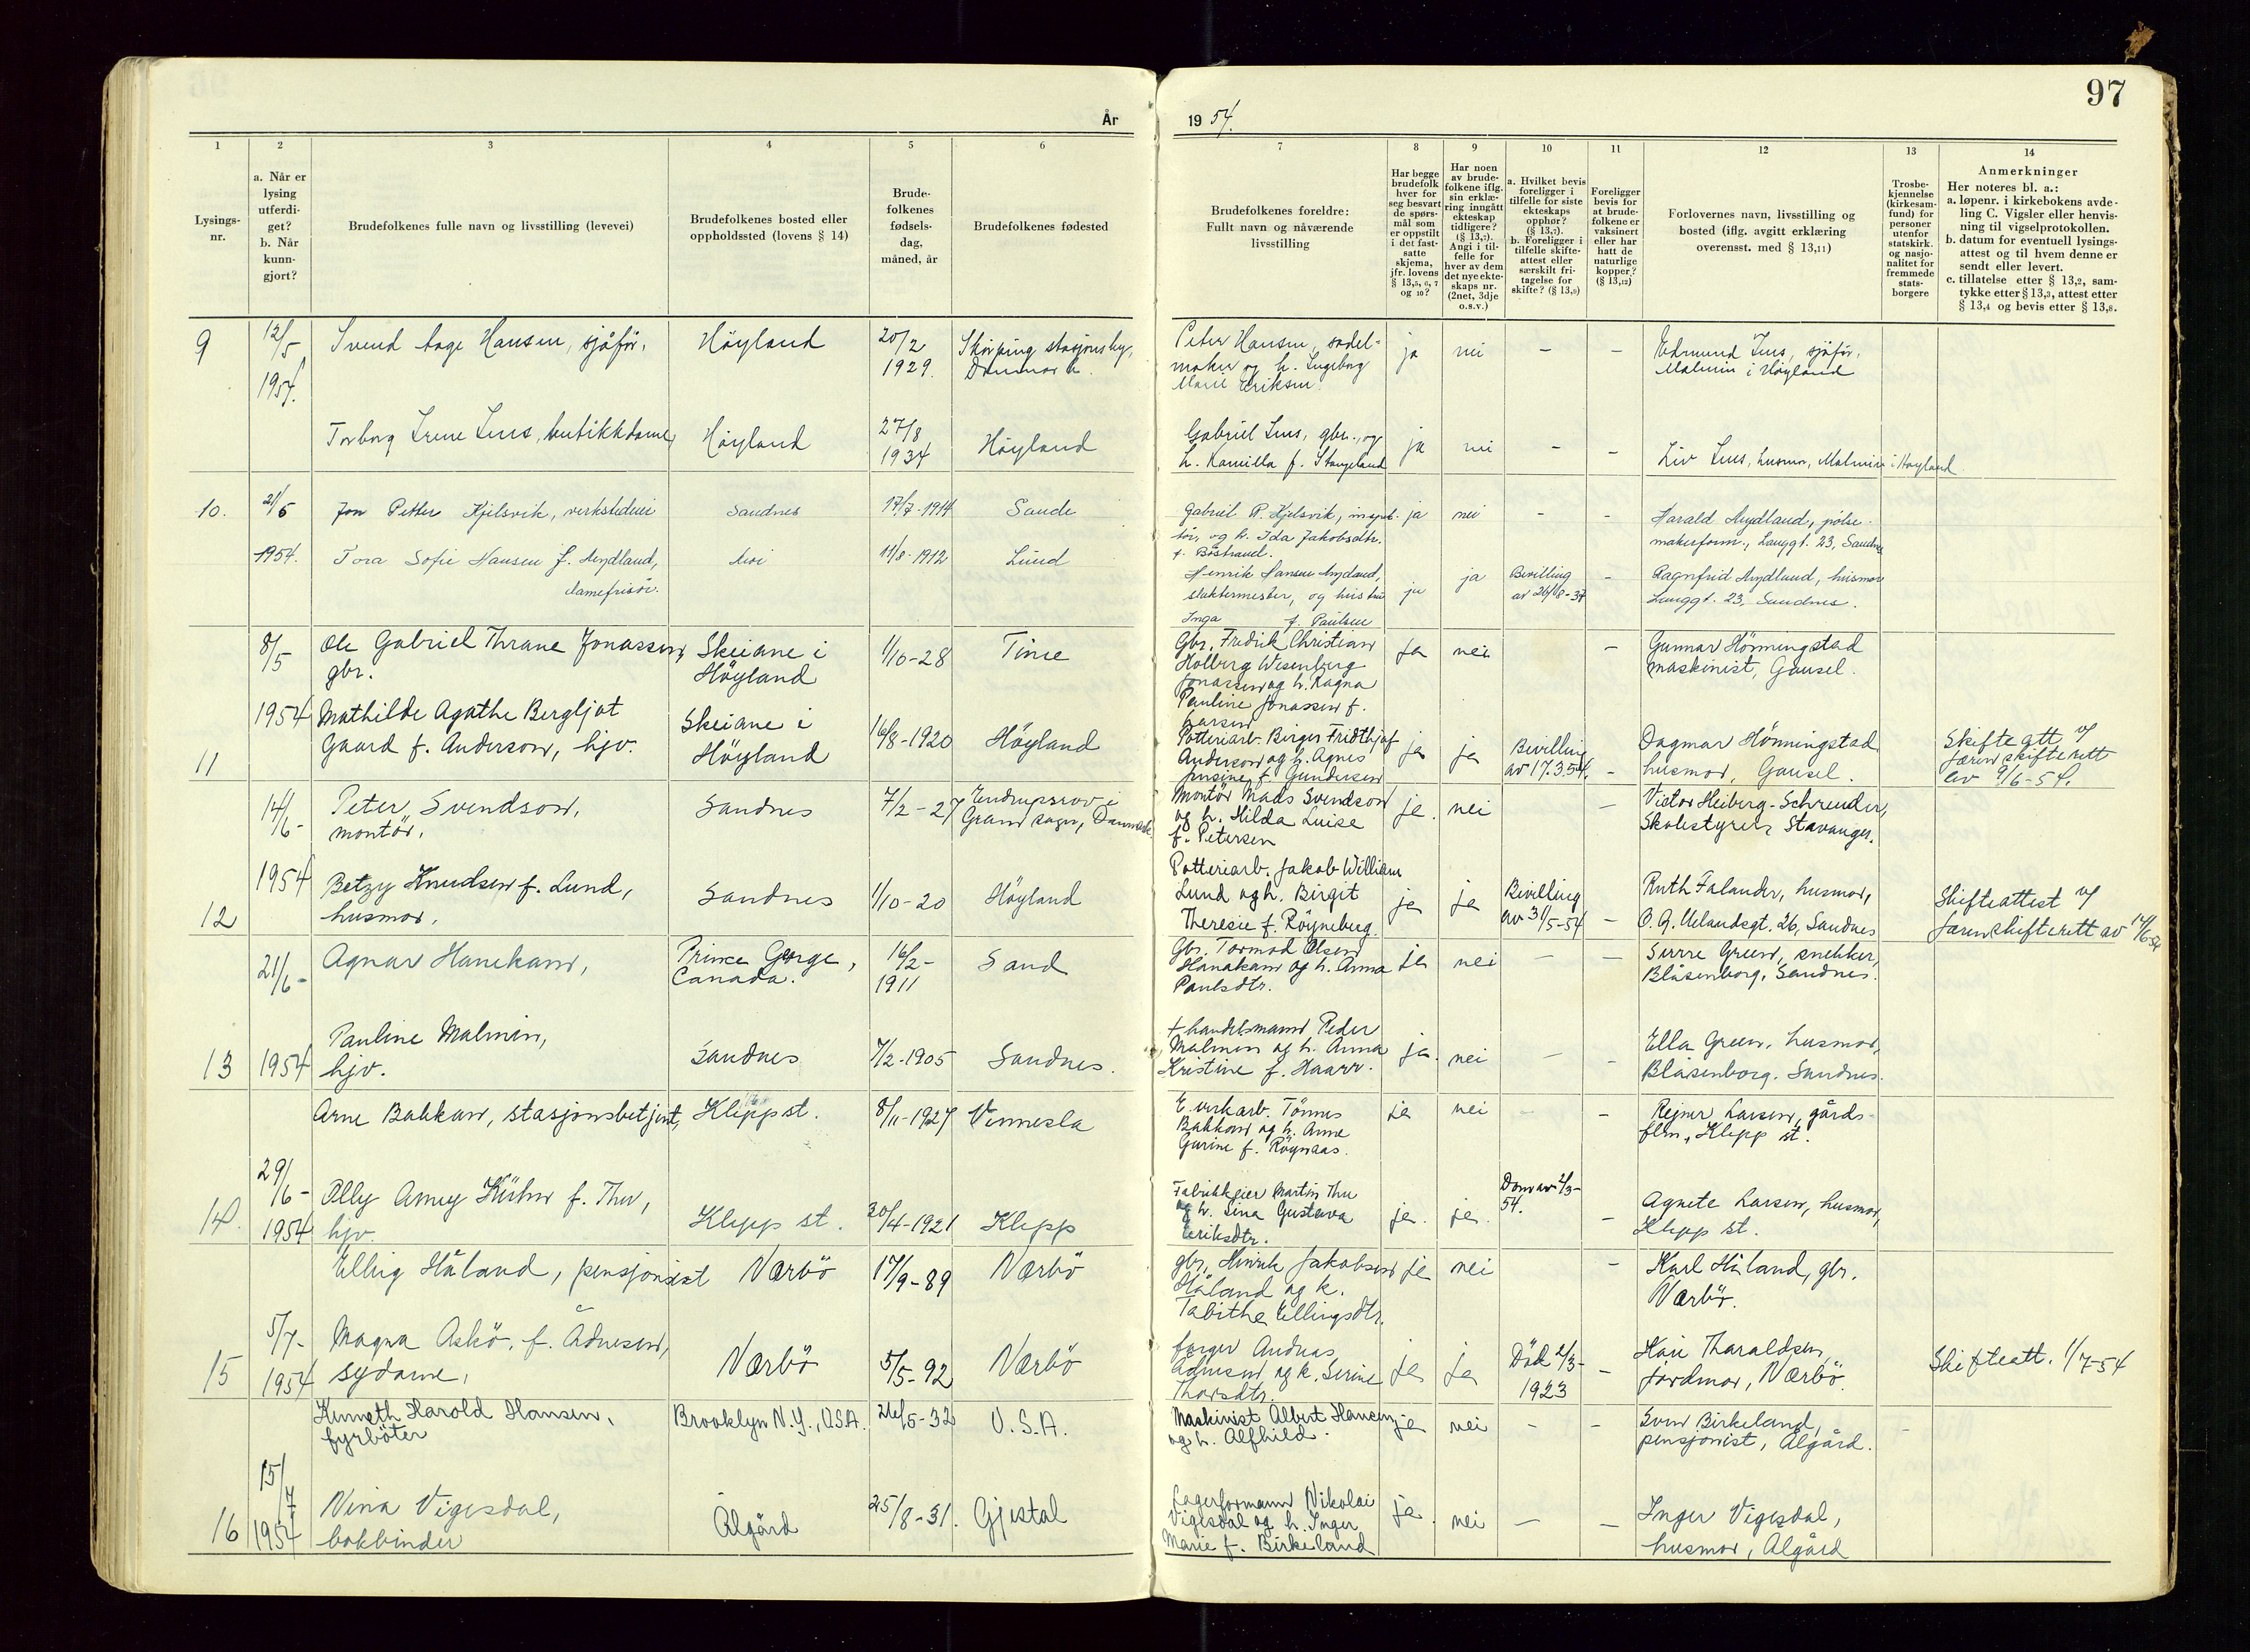 97
År
19 54.
1
2
3
4
5
6
7
8
9
10
11
12
13
14
Lysings-
nr.
a. Når er
lysing
utferdi-
get?
b. Når
kunn-
gjort?
Brudefolkenes fulle navn og livsstilling (levevei)
Brudefolkenes bosted eller
oppholdssted (lovens § 14)
Brude-
folkenes
fødsels-
dag,
måned, år
Brudefolkenes fødested
Brudefolkenes foreldre:
Fullt navn og nåværende
livsstilling
Har begge
brudefolk
hver for
seg besvart
de spørs-
mål som
er oppstilt
i det fast-
satte
skjema,
jfr. lovens
§ 13,5, 6, 7
og 10?
Har noen
av brude-
folkene iflg.
sin erklæ-
ring inngått
ekteskap
tidligere?
(§ 13,7).
Angi i til-
felle for
hver av dem
det nye ekte-
skaps nr.
(2net, 3dje
o.s.v.)
a. Hvilket bevis
foreligger i
tilfelle for siste
ekteskaps
opphør?
(§ 13,7).
b. Foreligger i
tilfelle skifte-
attest eller
særskilt fri-
tagelse for
skifte? (§ 13,9)
Foreligger
bevis for
at brude-
folkene er
vaksinert
eller har
hatt de
naturlige
kopper?
(§ 13,12)
Forlovernes navn, livsstilling og
bosted (iflg. avgitt erklæring
overensst. med § 13,11)
Trosbe-
kjennelse
(kirkesam-
fund) for
personer
utenfor
statskirk.
og nasjo-
nalitet for
fremmede
stats-
borgere
Anmerkninger
Her noteres bl. a.:
a. løpenr. i kirkebokens avde-
ling C. Vigsler eller henvis-
ning til vigselprotokollen.
b. datum for eventuell lysings-
attest og til hvem denne er
sendt eller levert.
c. tillatelse etter § 13,2, sam-
tykke etter § 13,3, attest etter
§ 13,4 og bevis etter § 13,8.
9
12/5
1954.
Svend Aage Hansen, sjåfør,
Höyland
20/2
1929.
Skörping stasjonsby,
Danmark.
Peter Hansen, sadel-
maker og h. Ingeborg
Marie Eriksen
ja
nei
–
–
Edmund Lius, sjåför,
Malmin i Höyland
Torborg Irene Lius, butikkdame,
Höyland
27/8
1934
Höyland
Gabriel Lius, gbr., og
h. Kamilla f. Stangeland
ja
nei
–
–
Liv Lius, husmor, Malmin i Høyland
10.
21/5
1954.
Jon Petter Kjelsvik, verkstedeier
Sandnes
17/7-1914
Sande
Gabriel P. Kjelsvik, inspek-
tör, og h. Ida Jakobsdtr.
f. Böstrand.
ja
nei
–
–
Harald Mydland, pölse-
makerform., Langgt. 23, Sandnes
Tora Sofie Hansen f. Mydland,
damefrisör.
11/8-1912
Lund
Henrik Hansen Mydland,
slaktermester, og hustru
Inga f. Paulsen
ja
ja
Bevilling
av 26/8-37
–
Ragnfrid Mydland, husmor
Langgt. 23, Sandnes.
8/5
1954
11
Ole Gabriel Thrane Jonassen,
gbr.
Skeiane i
Höyland
1/10-28
Time
Gbr. Fredrik Christian
Holberg Wesenberg
Jonassen og h. Ragna
Pauline Jonassen f.
Larsen
ja
nei
–
Gunnar Hönningstad
maskinist, Gausel.
Mathilde Agathe Bergljot
Gaard f. Anderson, hjv.
Skeiane i
Höyland
16/8-1920
Höyland
Potteriarb. Birger Fridthjof
Anderson og h. Agnes
f. Gundersen
ja
ja
Bevilling
av 17.3.54.
–
Dagmar Hönningstad
husmor, Gausel.
Skifteatt v/
Jæren skifterett
av 9/6-54.
14/6-
1954
12
Peter Svendson,
montör.
Sandnes
7/2-27
i
Gram sogn, Danmark
Montör Mads Svendson
og h. Hilda Luise
f. Petersen
ja.
nei
–
Victor Heiberg-Schreuder,
Skolestyrer, Stavanger.
Betzy Knudsen f. Lund,
husmor.
Sandnes
1/10-20
Höyland
Potteriarb. Jakob William
Lund og h. Birgit
Theresie f. Röyneberg.
ja
ja
Bevilling
av 31/5-54
–
Ruth Falander, husmor,
O. G. Uelandsgt. 26, Sandnes
Skifteattest v/
Jæren skifterett av 14/6-54
21/6-
1954
13
Agnar Hanekam,
Prince George,
Canada.
16/2-
1911
Sand
Gbr. Tormod Olsen
Hanakam og h. Anna
Paulsdtr.
ja
nei
–
–
Sverre Green, snekker,
Blåsenborg, Sandnes.
Pauline Malmin,
hjv.
Sandnes
7/2-1905
Sandnes.
+ handelsmann Peder
Malmin og h. Anna
Kristine f. Haarr.
ja.
nei
–
–
Ella Green, husmor,
Blåsenborg. Sandnes.
29/6-
1954
14.
Arne Bakkan, stasjonsbetjent,
Klepp st.
8/11-1927
Vennesla
E.verkarb. Tönnes
Bakkan og h. Anne
Gurine f. Röynaas.
ja
nei
–
–
Rejner Larsen, gårds-
flm., Klepp st.
Ally Amey Kühn f. Thu,
hjv.
Klepp st.
20/4-1921
Klepp
Fabrikkeier Martin Thu
og h. Lina Gustava
Eriksdtr.
ja.
ja.
Dom av 2/3-
54.
–
Agnete Larsen, husmor,
Klepp st.
5/7-
1954
15
Elling Håland, pensjonist
Nærbö
17/9-89
Nærbö
gbr. Hinrik Jakobsen
Håland og k.
Tabitha Ellingsdtr.
ja
nei
–
Karl Håland, gbr.
Nærbö.
Magna Askö, f. Ådnesen,
sydame,
Nærbö
5/5-92
Nærbö
farger Andreas
Ådnesen og k. Serine
Thorsdtr.
ja
ja
Död 2/3-
1923
–
Kari Tharaldsen,
jordmor, Nærbö.
Skifteatt. 1/7-54
15/7
1954
16
Kenneth Harold Hansen,
fyrböter
Brooklyn N.Y., USA.
26/5-32
U.S.A.
Maskinist Albert Hansen
og h. Alfhild.
ja
nei
–
–
Sven Birkeland,
pensjonist, Ålgård.
–
Nina Vigesdal,
bokbinder
Ålgård
25/8-31.
Gjestal
Lagerformann Nikolai
Vigesdal og h. Inger
Marie f. Birkeland
ja.
nei
–
–
Inger Vigesdal,
husmor, Ålgård